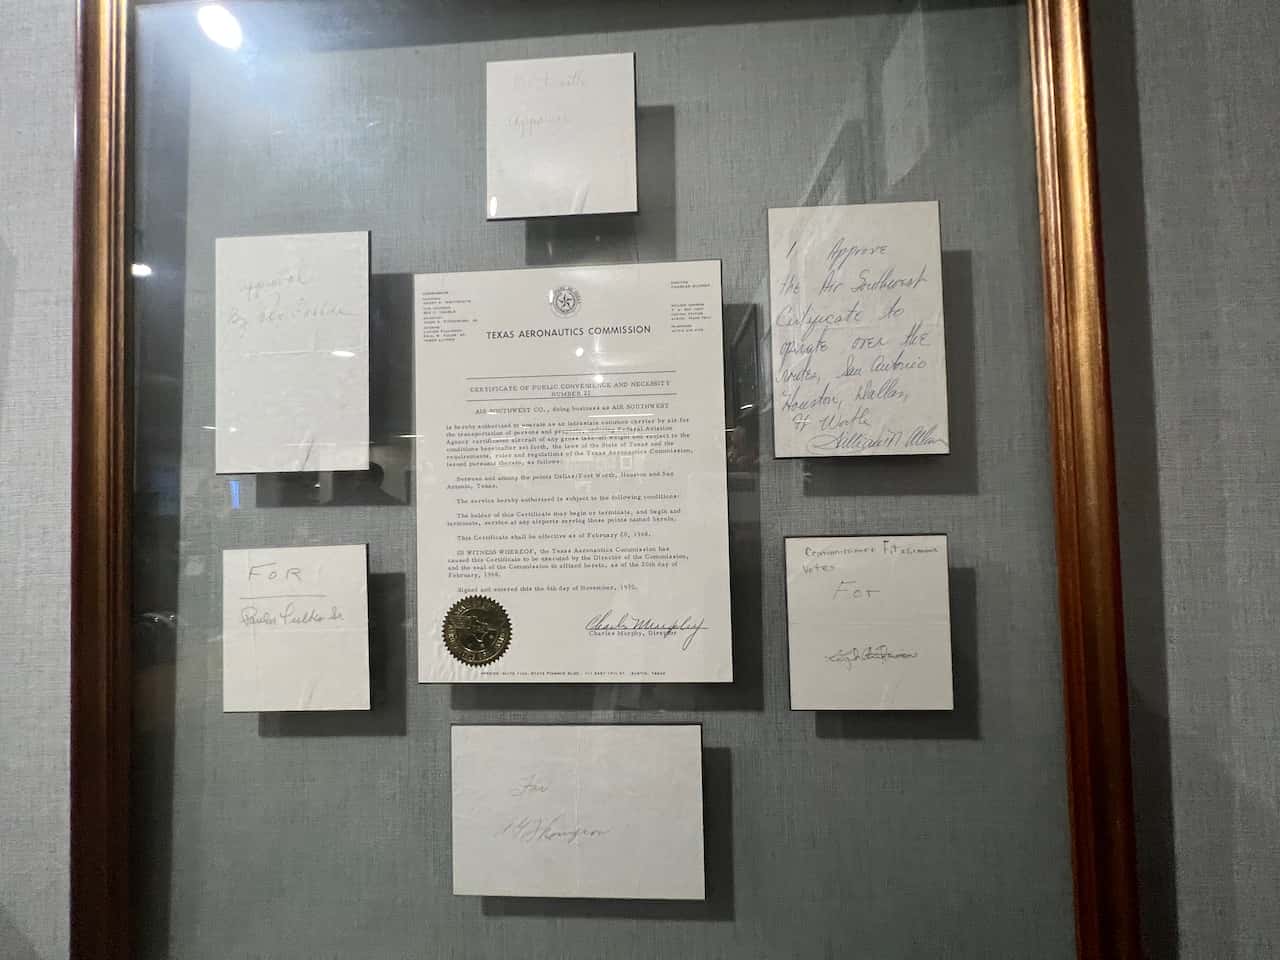 Approve
approval
By
TEXAS AERONAUTICS COMMISSION
CERTIFICATE OF PUBLIC CONVENIENCE AND NECESSITY
NUMBER 22
AIR SOUTHWEST CO., doing business as AIR SOUTHWEST
is hereby authorized to operate as an intrastate common carrier by air for
the transportation of persons and property utilizing Federal Aviation
Agency certificated aircraft of any gross take-off weight and subject to the
conditions hereinafter set forth, the laws of the State of Texas and the
requirements, rules and regulations of the Texas Aeronautics Commission,
issued pursuant thereto, as follows:
Between and among the points Dallas/Fort Worth, Houston and San
Antonio, Texas.
The service hereby authorized is subject to the following conditions:
The holder of this Certificate may begin or terminate, and begin and
terminate, service at any airports serving those points named herein.
This Certificate shall be effective as of February 20, 1968.
IN WITNESS WHEREOF, the Texas Aeronautics Commission has
caused this Certificate to be executed by the Director of the Commission,
and the seal of the Commission is affixed hereto, as of the 20th day of
February, 1968.
Signed and entered this the 6th day of November, 1970.
Charles Murphy
Charles Murphy, Director
I Approve
the Air Southwest
Certificate to
operate over the
routes, San Antonio
Houston, Dallas,
Ft Worth
William N. Allan
FOR
Commissioner Fitzsimmons
Votes
For
For
Thompson